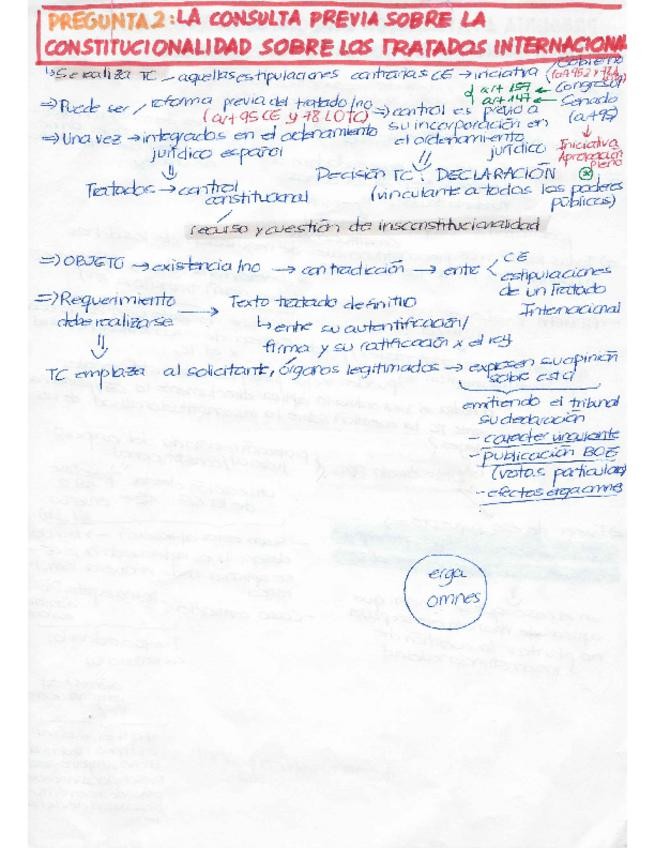 PREGUNTA 2: LA CONSULTA PREVIA SOBRE LA
CONSTITUCIONALIDAD SOBRE LOS TRATADOS INTERNACION
↳ Se realiza TC / aquellas estipulaciones contrarias CE → iniciativa
Gobierno
Congreso
Senado
art 157 ←
art 147 ←
(art 95)
Iniciativa
Aprobación
pleno
⇒ Puede ser / reforma previa del tratado/no
(art 95 CE y 78 LOTC)
⇒ control es previo a
su incorporación en
el ordenamiento
jurídico
⇓
Decisión TC: DECLARACIÓN
(vinculante a todos los poderes
públicos)
⇒ Una vez → integrados en el ordenamiento
jurídico español
⇓
Tratados → control
constitucional
recurso y cuestión de insconstitucionalidad
⇒ OBJETO → existencia/no → contradicción → entre < CE
estipulaciones
de un Tratado
Internacional
⇒ Requerimiento
debe realizarse
→ Texto tratado definitio
↳ entre su autentificación/
firma y su ratificación x el rey
⇓
TC emplaza al solicitante, órganos legitimados → expresen su opinión
sobre esta
emitiendo el tribunal
su declaración
- caracter vinculante
- publicación BOE
(votos particular
- efectos erga omnes
erga
omnes